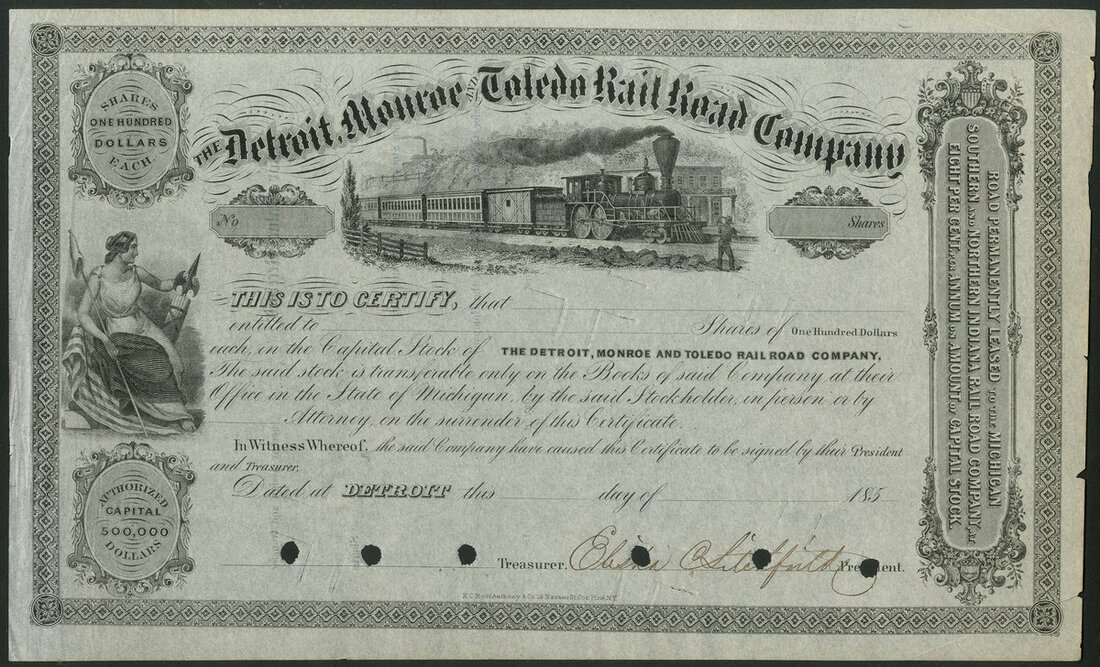 THE Detroit, Monroe AND Toledo Rail Road Company
SHARES
ONE HUNDRED
DOLLARS
EACH
No
Shares
THIS IS TO CERTIFY, that
entitled to Shares of One Hundred Dollars
each, in the Capital Stock of THE DETROIT, MONROE AND TOLEDO RAIL ROAD COMPANY,
The said stock is transferable only on the Books of said Company at their
Office in the State of Michigan, by the said Stockholder, in person or by
Attorney, on the surrender of this Certificate.
In Witness Whereof, the said Company have caused this Certificate to be signed by their President
and Treasurer.
Dated at DETROIT this day of 185
AUTHORIZED
CAPITAL
500,000
DOLLARS
Treasurer. President.
R.C. Root Anthony & Co. 16 Nassau St. Cor. Pine, N.Y.
ROAD PERMANENTLY LEASED TO THE MICHIGAN
SOUTHERN AND NORTHERN INDIANA RAIL ROAD COMPANY, AT
EIGHT PER CENT. PER ANNUM ON AMOUNT OF CAPITAL STOCK.